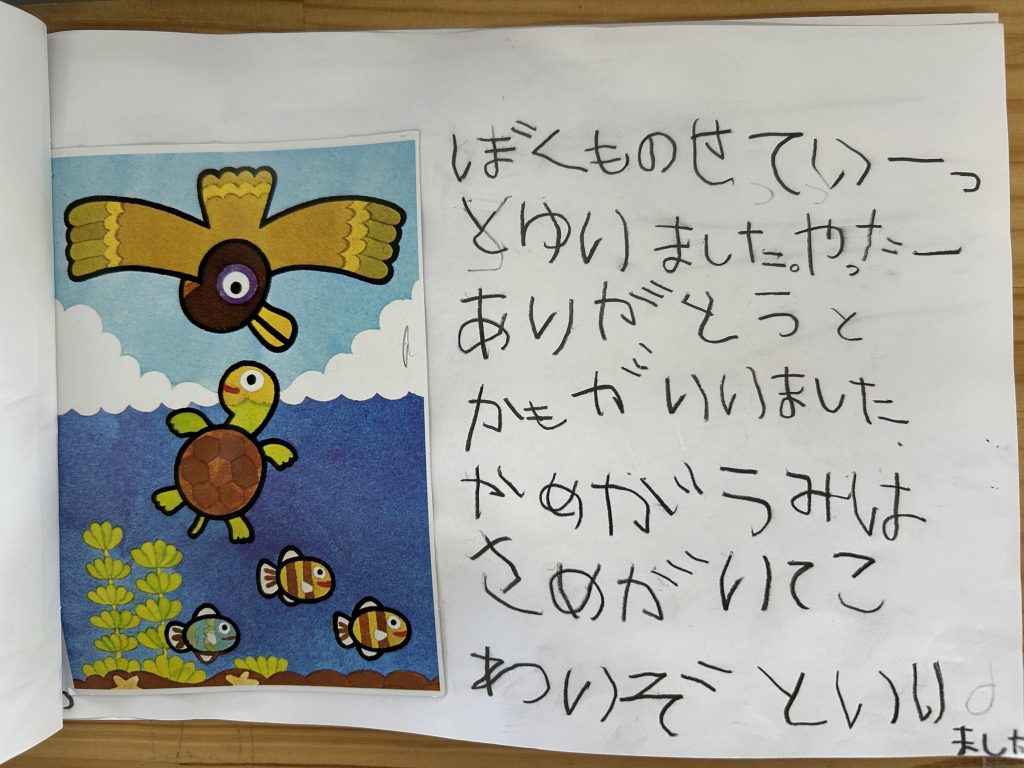 ぼくものせていーっ
とゆいました。やっだー
ありがとうと
かもがいいました
かめがうみは
さめがいてこ
わいぞといい
ました